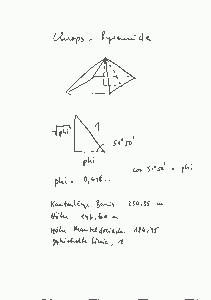 Cheops - Pyramide
√phi 1 51°50'
phi
cos 51°50' = phi
phi = 0,618..
Kantenlänge Basis 230,35 m
Höhe 146,60 m
Höhe Manteldreieck 186,45
gestrichelte Linie, 1